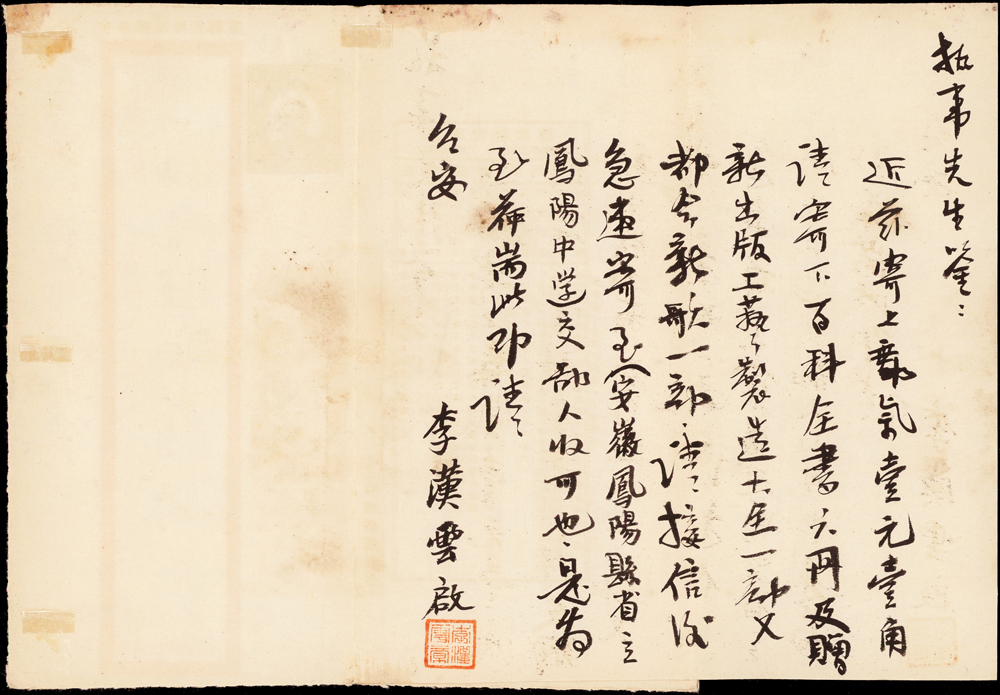 執事先生鑒：
近茲寄上郵票壹元壹角
請寄下百科全書六冊及贈
新出版工藝製造大全一部又
新歌一部請接信後
急速寄至安徽鳳陽縣省立
鳳陽中学交鄙人收可也是為
至荷耑此即請
台安
李漢雲啟
李漢雲章